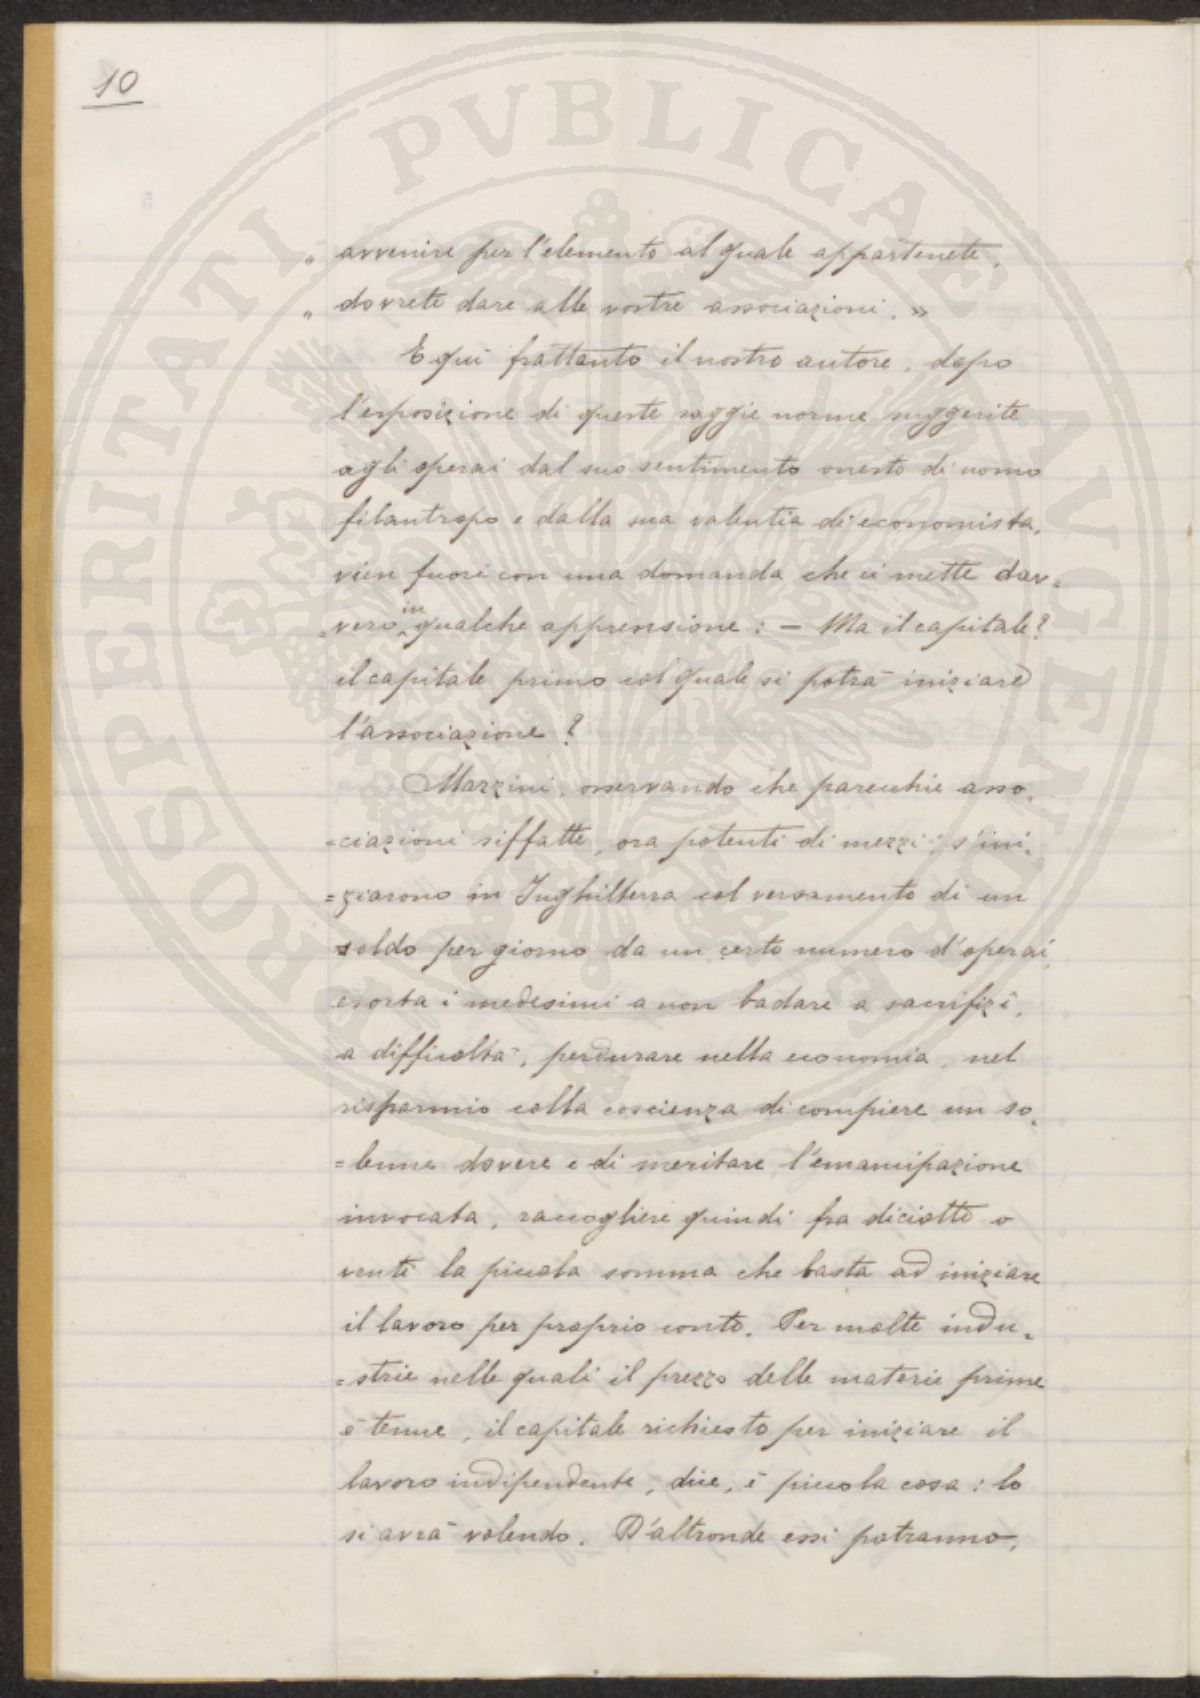 10
PROSPERITATI PVBLICAE AVGENDAE
" avvenire per l'elemento al quale appartenete,
" dovrete dare alle vostre associazioni. »
E qui frattanto il nostro autore, dopo
l'esposizione di queste saggie norme suggerite
agli operai dal suo sentimento onesto di uomo
filantropo e dalla sua valentia di economista,
vien fuori con una domanda che ci mette dav=
vero in qualche apprensione: — Ma il capitale?
il capitale primo col quale si potrà iniziare
l'associazione?
Mazzini, osservando che parecchie asso=
=ciazioni siffatte, ora potenti di mezzi, s'ini=
=ziarono in Inghilterra col versamento di un
soldo per giorno da un certo numero d'operai,
esorta i medesimi a non badare a sacrifizi,
a difficoltà, perdurare nella economia, nel
risparmio colla coscienza di compiere un so=
=lenne dovere e di meritare l'emancipazione
invocata, raccogliere quindi fra diciotto o
venti la piccola somma che basta ad iniziare
il lavoro per proprio conto. Per molte indu=
=strie nelle quali il prezzo delle materie prime
è tenue, il capitale richiesto per iniziare il
lavoro indipendente, dice, è piccola cosa: lo
si avrà volendo. D'altronde essi potranno,